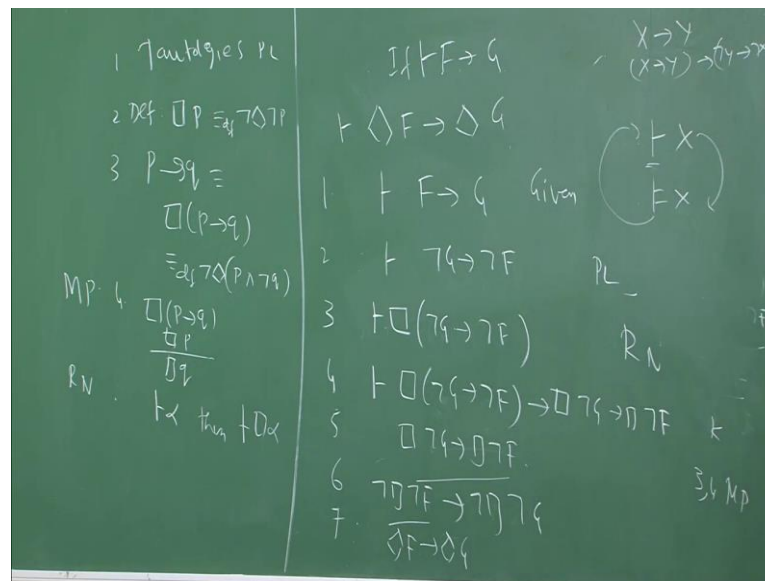 1 Tautologies PL
2 Def. □P ≡df ¬◇¬P
3 P⥽q ≡
□(P→q)
≡df ¬◇(P∧¬q)
MP. 4. □(P→q)
□P
□q
RN.
⊢α then ⊢□α
If ⊢F→G
⊢ ◇F→◇G
1 ⊢ F→G Given
2 ⊢ ¬G→¬F PL
3 ⊢□(¬G→¬F) RN
4 ⊢ □(¬G→¬F)→□¬G→□¬F K
5 □¬G→□¬F 3,4 MP
6 ¬□¬F→¬□¬G
7. ◇F→◇G
X→Y
(X→Y)→(¬Y→¬X
⊢ X
⊨ X